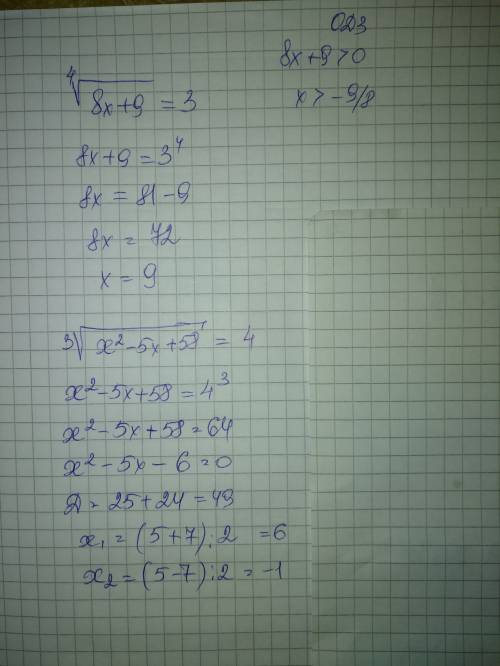 ОДЗ
8x+9>0
x > -9/8
⁴√8x+9 = 3
8x+9 = 3⁴
8x = 81-9
8x = 72
x = 9
³√x²-5x+58 = 4
x²-5x+58 = 4³
x²-5x+58 = 64
x²-5x-6=0
Д = 25+24 = 49
x₁ = (5+7):2 = 6
x₂ = (5-7):2 = -1